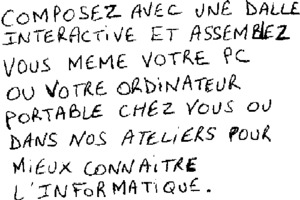 COMPOSEZ AVEC UNE DALLE
INTERACTIVE ET ASSEMBLEZ
VOUS MEME VOTRE PC
OU VOTRE ORDINATEUR
PORTABLE CHEZ VOUS OU
DANS NOS ATELIERS POUR
MIEUX CONNAITRE
L'INFORMATIQUE.